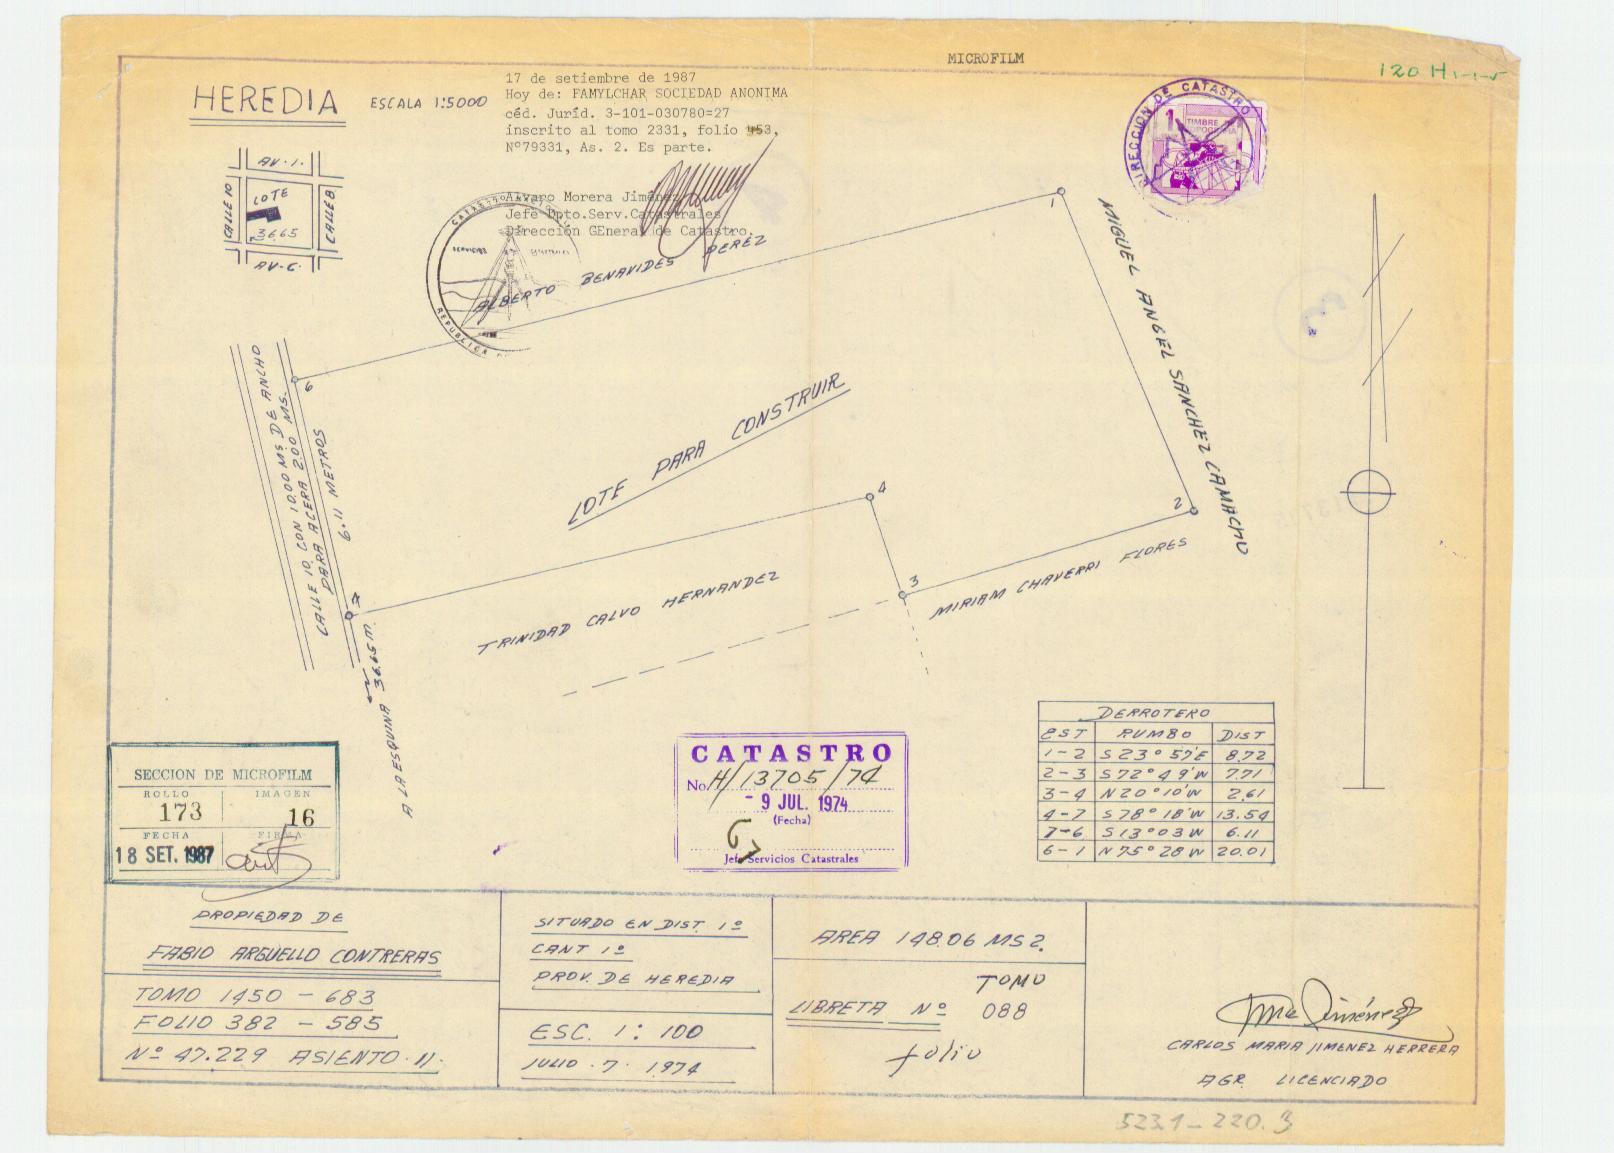 MICROFILM
120 H-1-1-5
HEREDIA ESCALA 1:5000
17 de setiembre de 1987
Hoy de: FAMYLCHAR SOCIEDAD ANONIMA
céd. Juríd. 3-101-030780=27
inscrito al tomo 2331, folio 453,
Nº79331, As. 2. Es parte.
Alvaro Morera Jiménez
Jefe Dpto.Serv.Catastrales
Dirección GEneral de Catastro.
DIRECCION DE CATASTRO
1
TIMBRE
AV. 1.
CALLE 10
LOTE
36.65
CALLE 8
AV. C.
SERVICIOS
REPUBLICA
ALBERTO BENAVIDES PEREZ
1
MIGUEL ANGEL SANCHEZ CAMACHO
6
CALLE 10 CON 10.00 MS DE ANCHO
PARA ACERA 2.00 MS.
6.11 METROS
LOTE PARA CONSTRUIR
4
2
3
7
TRINIDAD CALVO HERNANDEZ
MIRIAM CHAVERRI FLORES
A LA ESQUINA 36.65 M.
DERROTERO
EST RUMBO DIST
1-2 S23°57'E 8.72
2-3 S72°49'W 7.71
3-4 N20°10'W 2.61
4-7 S78°18'W 13.54
7-6 S13°03'W 6.11
6-1 N75°28'W 20.01
SECCION DE MICROFILM
ROLLO IMAGEN
173 16
FECHA FIRMA
18 SET. 1987
CATASTRO
No. H/13705/74
- 9 JUL. 1974
(Fecha)
Jefe Servicios Catastrales
PROPIEDAD DE
FABIO ARGUELLO CONTRERAS
TOMO 1450 - 683
FOLIO 382 - 585
Nº 47.229 ASIENTO 11.
SITUADO EN DIST. 1º
CANT 1º
PROV. DE HEREDIA
ESC. 1: 100
JULIO. 7. 1974
AREA 148.06 MS2.
TOMO
LIBRETA Nº 088
folio
CARLOS MARIA JIMENEZ HERRERA
AGR. LICENCIADO
523.1-220.3